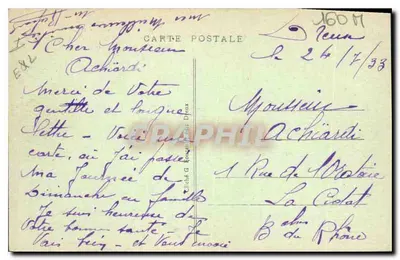 160 M
EXL
CARTE POSTALE
Dreux
le 24/7/33
Cher Monsieur
Achiardi
Merci de Votre
gentille et longue
lettre - Voici une
carte, où j'ai passé
ma Journée de
Dimanche en famille
Je suis heureuse de
Votre bonne santé - Je
Vais bien - et Vous envoie
Monsieur
Achiardi
1 Rue de
La Ciotat
B. du Rhône